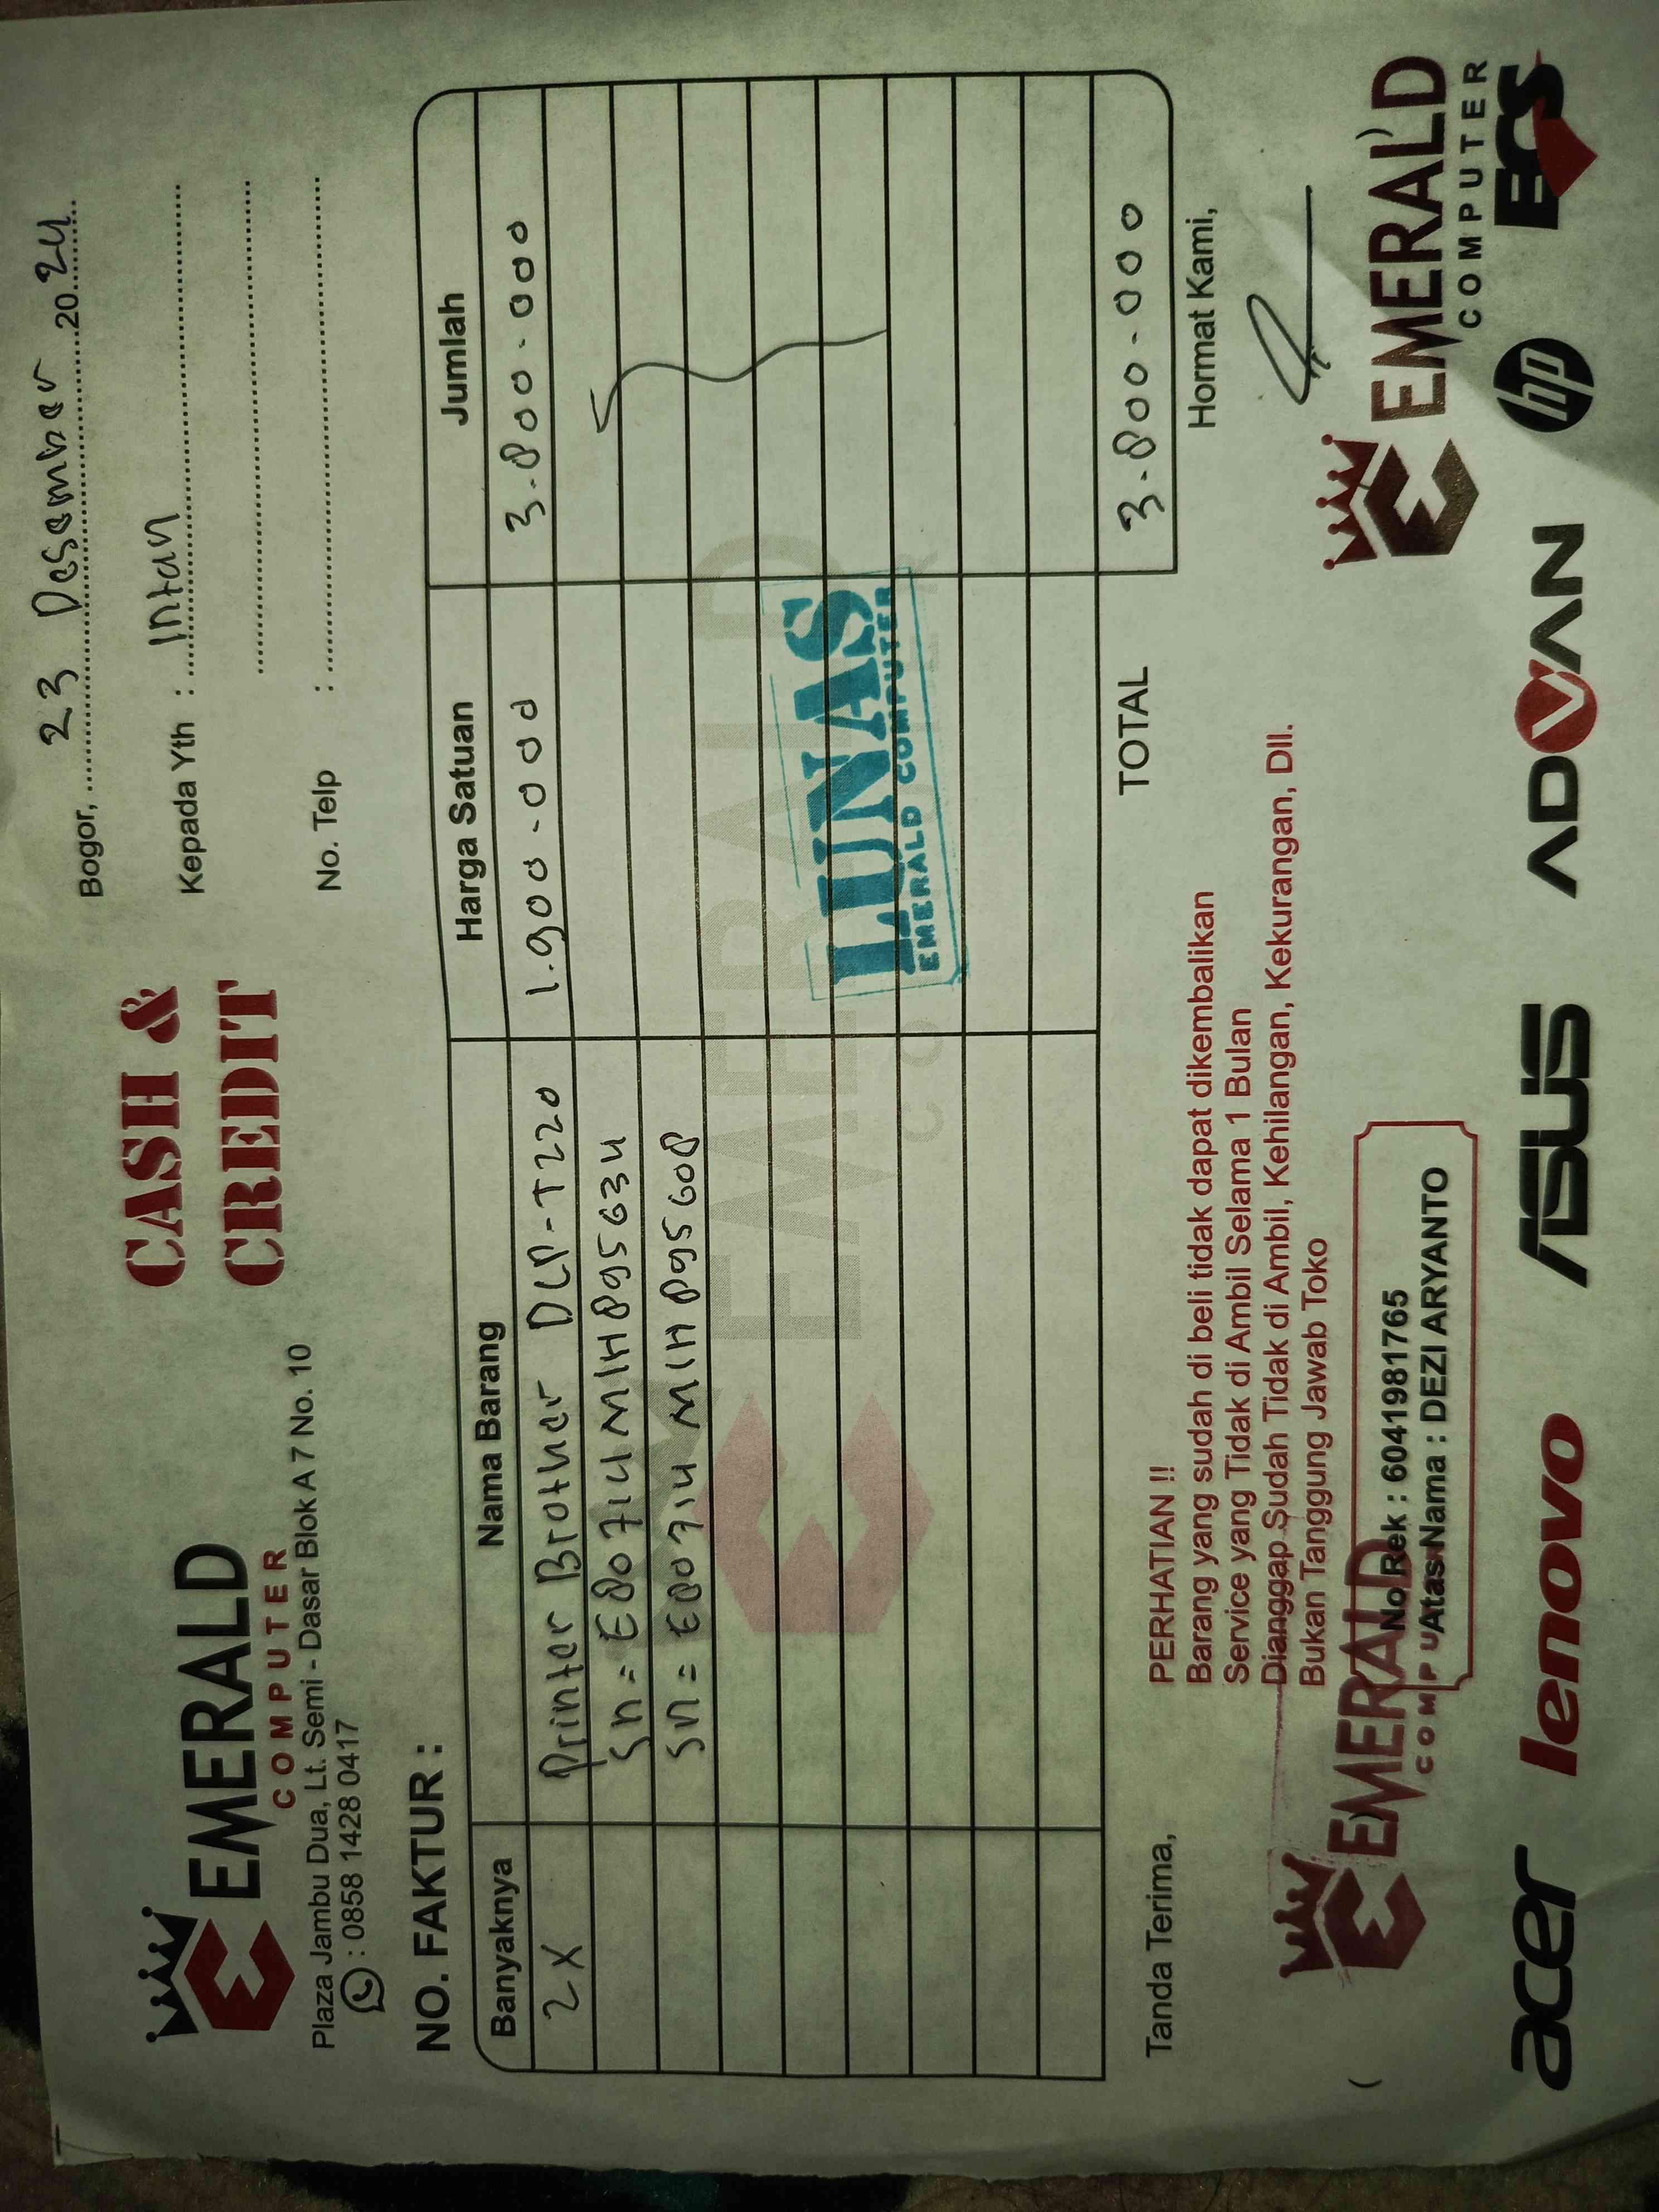 EMERALD
COMPUTER
Plaza Jambu Dua, Lt. Semi - Dasar Blok A 7 No. 10
: 0858 1428 0417
CASH &
CREDIT
Bogor, 23 Desember 2024
Kepada Yth : Intan
No. Telp :
NO. FAKTUR :
Banyaknya Nama Barang Harga Satuan Jumlah
2X Printer Brother DCP-T220 1.900.000 3.800.000
Sn = E80714M1H895634
Sn = E80714M1H895608
EMERALD
LUNAS
EMERALD COMPUTER
TOTAL 3.800.000
Tanda Terima,
PERHATIAN !!
Barang yang sudah di beli tidak dapat dikembalikan
Service yang Tidak di Ambil Selama 1 Bulan
Dianggap Sudah Tidak di Ambil, Kehilangan, Kekurangan, Dll.
Bukan Tanggung Jawab Toko
Hormat Kami,
EMERALD
COMPU
No Rek : 6041981765
Atas Nama : DEZI ARYANTO
EMERALD
COMPUTER
acer lenovo ASUS ADVAN hp ECS